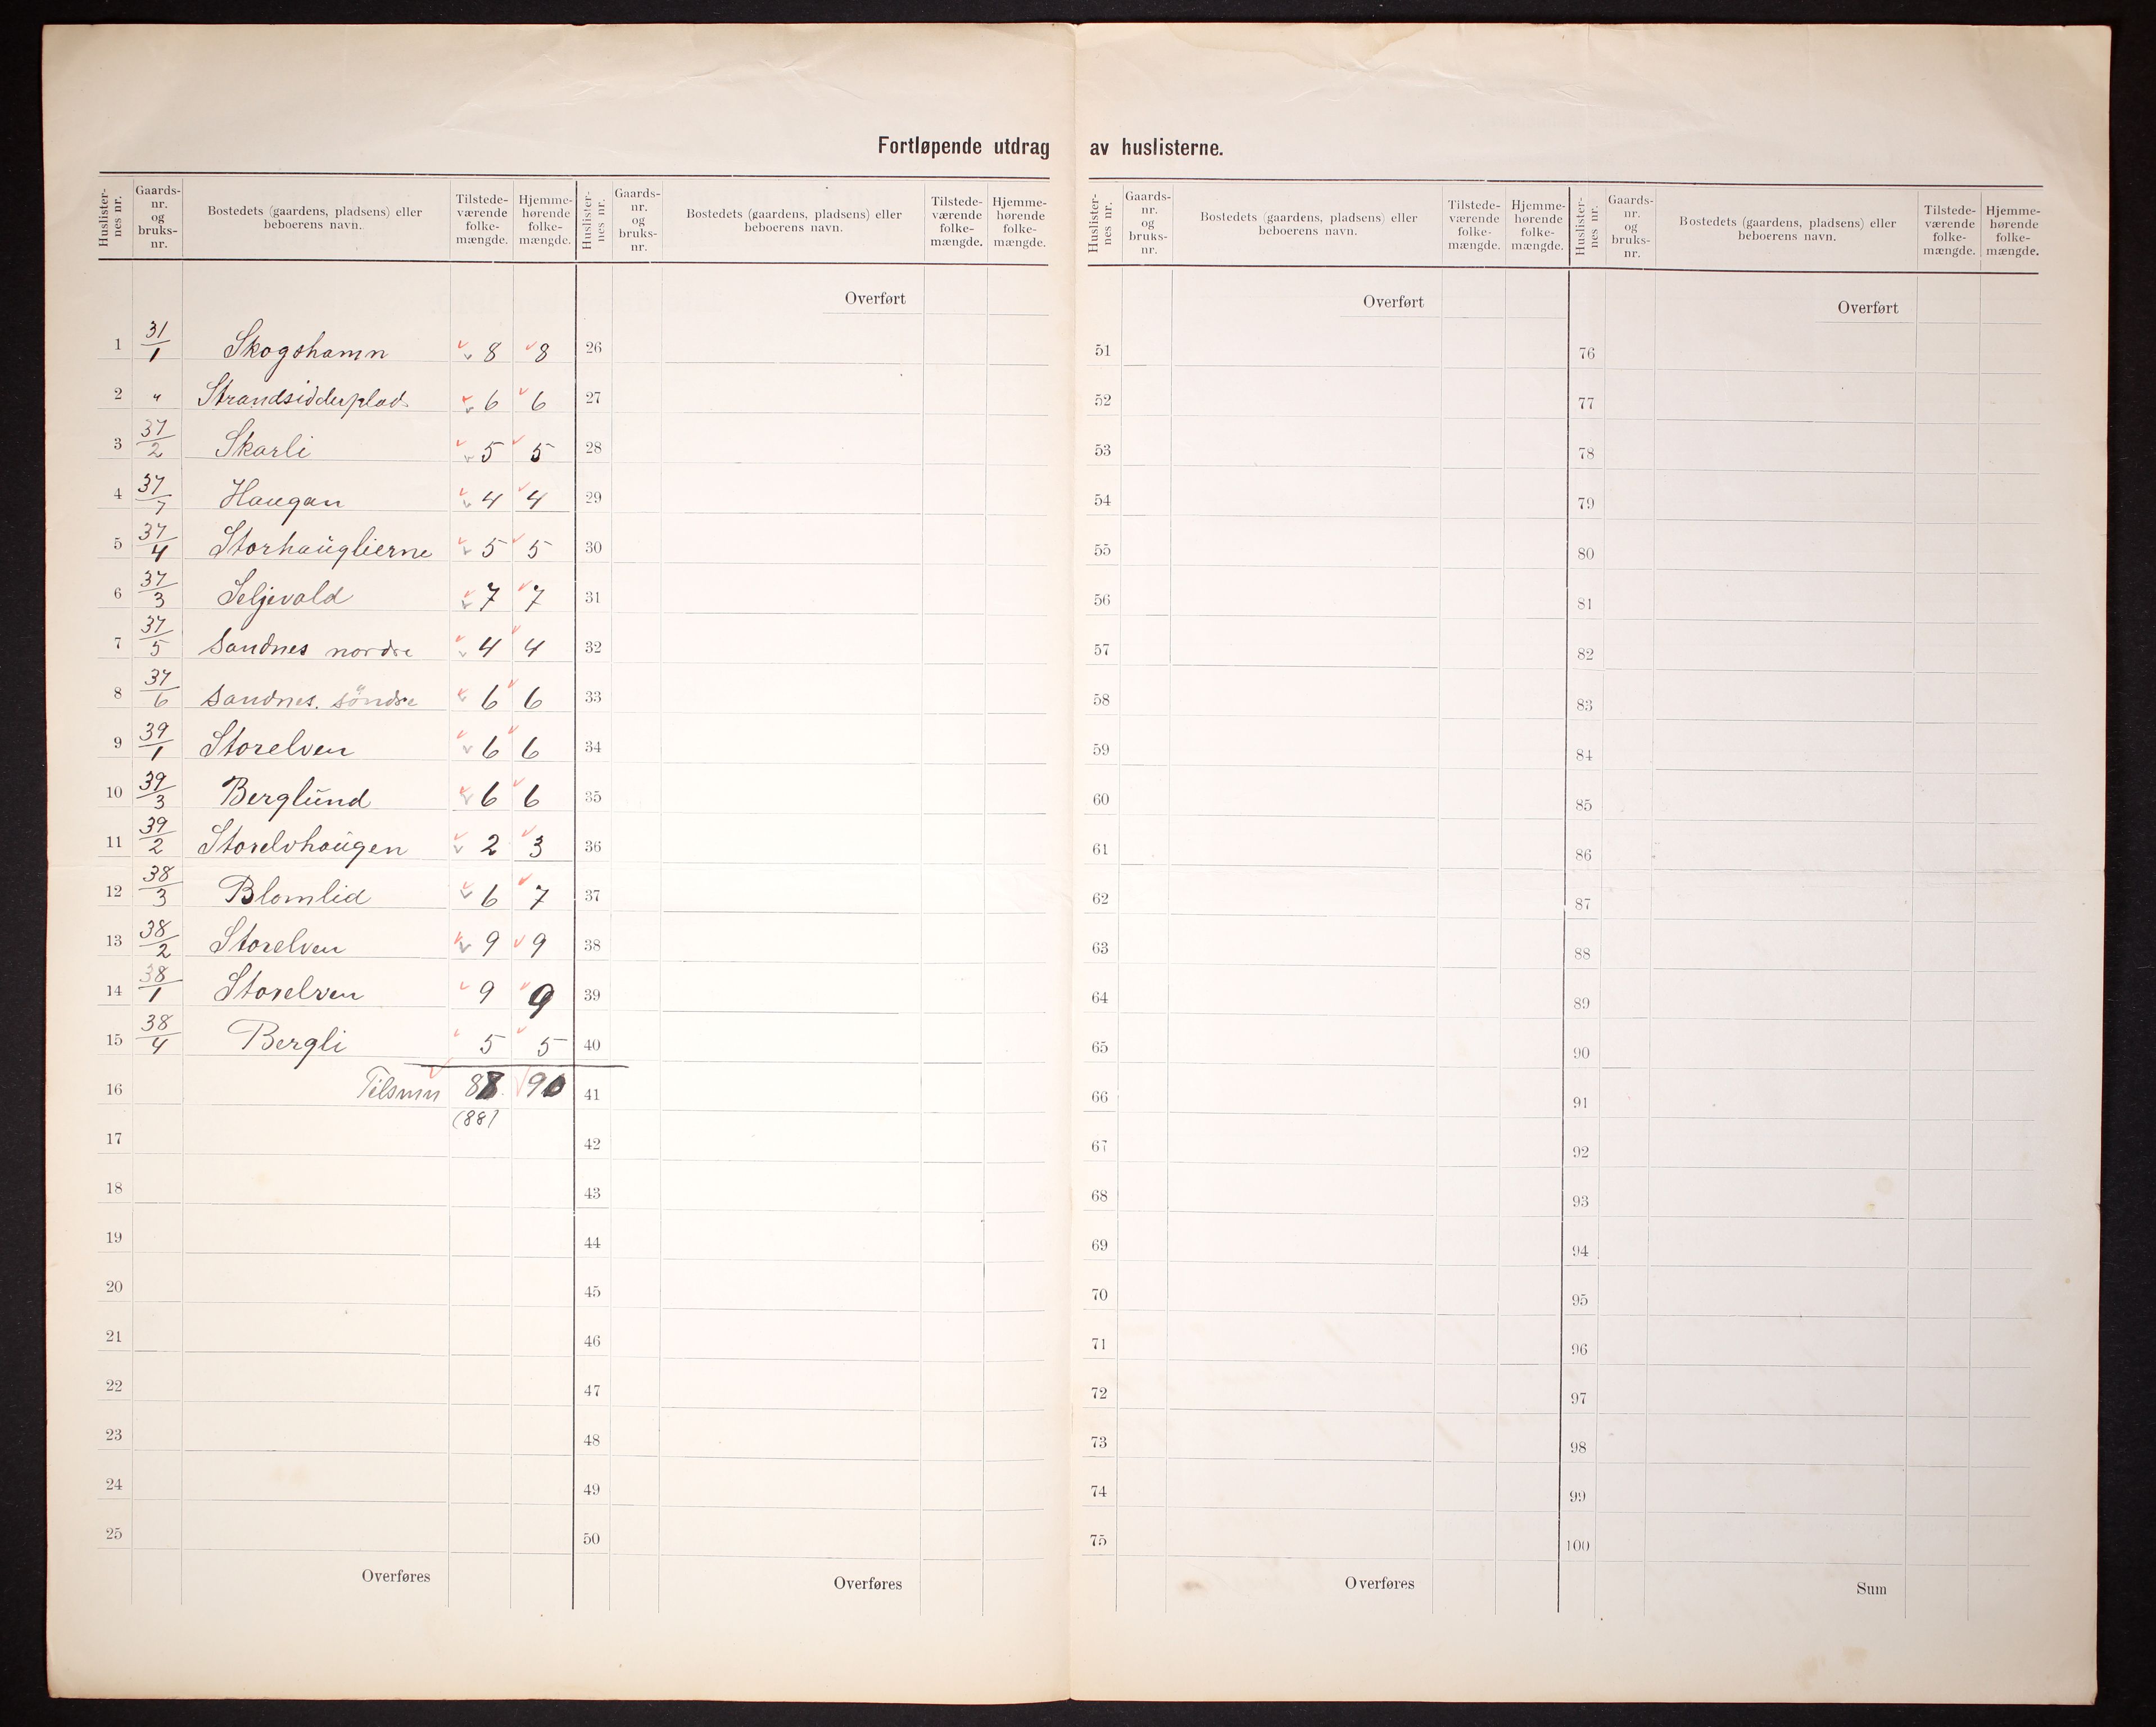 Fortløpende utdrag av huslisterne.
Huslister-nes nr. | Gaards-nr. og bruks-nr. | Bostedets (gaardens, pladsens) eller beboerens navn. | Tilstede-værende folke-mængde. | Hjemme-hørende folke-mængde.
1 31/1 Skogshamn 8 8
2 " Strandsidderplad. 6 6
3 37/2 Skarli 5 5
4 37/7 Haugan 4 4
5 37/4 Storhauglierne 5 5
6 37/3 Seljevold 7 7
7 37/5 Sandnes nordre 4 4
8 37/6 Sandnes. söndre 6 6
9 39/1 Storelven 6 6
10 39/3 Berglund 6 6
11 39/2 Storelvhaugen 2 3
12 38/3 Blomlid 6 7
13 38/2 Storelven 9 9
14 38/1 Storelven 9 9
15 38/4 Bergli 5 5
16 Tilsmn 88 90
(88)
17
18
19
20
21
22
23
24
25
Overføres
Huslister-nes nr. | Gaards-nr. og bruks-nr. | Bostedets (gaardens, pladsens) eller beboerens navn. | Tilstede-værende folke-mængde. | Hjemme-hørende folke-mængde.
Overført
26
27
28
29
30
31
32
33
34
35
36
37
38
39
40
41
42
43
44
45
46
47
48
49
50
Overføres
Huslister-nes nr. | Gaards-nr. og bruks-nr. | Bostedets (gaardens, pladsens) eller beboerens navn. | Tilstede-værende folke-mængde. | Hjemme-hørende folke-mængde.
Overført
51
52
53
54
55
56
57
58
59
60
61
62
63
64
65
66
67
68
69
70
71
72
73
74
75
Overføres
Huslister-nes nr. | Gaards-nr. og bruks-nr. | Bostedets (gaardens, pladsens) eller beboerens navn. | Tilstede-værende folke-mængde. | Hjemme-hørende folke-mængde.
Overført
76
77
78
79
80
81
82
83
84
85
86
87
88
89
90
91
92
93
94
95
96
97
98
99
100
Sum